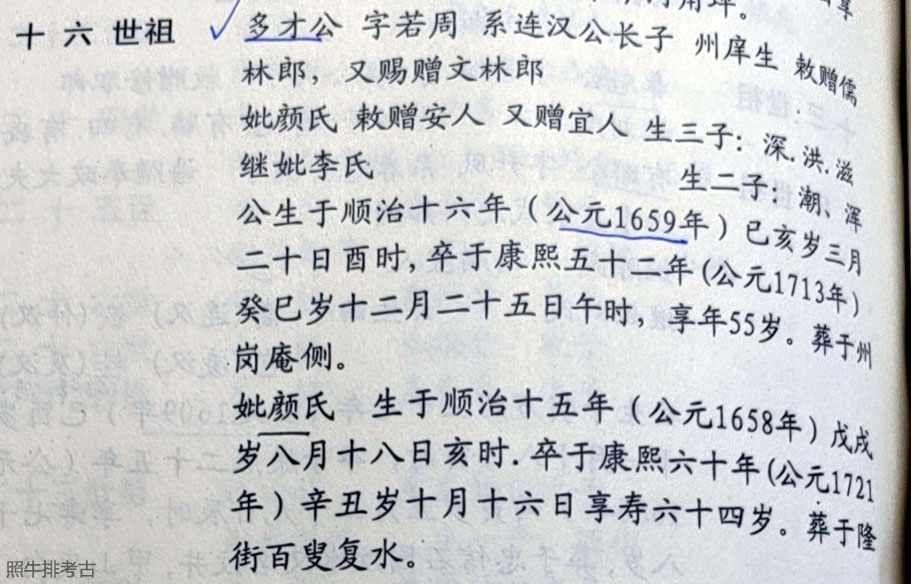 十六世祖 多才公 字若周 系连汉公长子 州庠生 敕赠儒
林郎，又赐赠文林郎
妣颜氏 敕赠安人 又赠宜人 生三子：深.洪.滋
继妣李氏 生二子：潮、浑
公生于顺治十六年（公元1659年）已亥岁三月
二十日酉时,卒于康熙五十二年(公元1713年)
癸巳岁十二月二十五日午时，享年55岁。葬于州
岗庵侧。
妣颜氏 生于顺治十五年（公元1658年）戊戌
岁八月十八日亥时.卒于康熙六十年(公元1721
年）辛丑岁十月十六日享寿六十四岁。葬于隆
街百叟复水。
照牛排考古